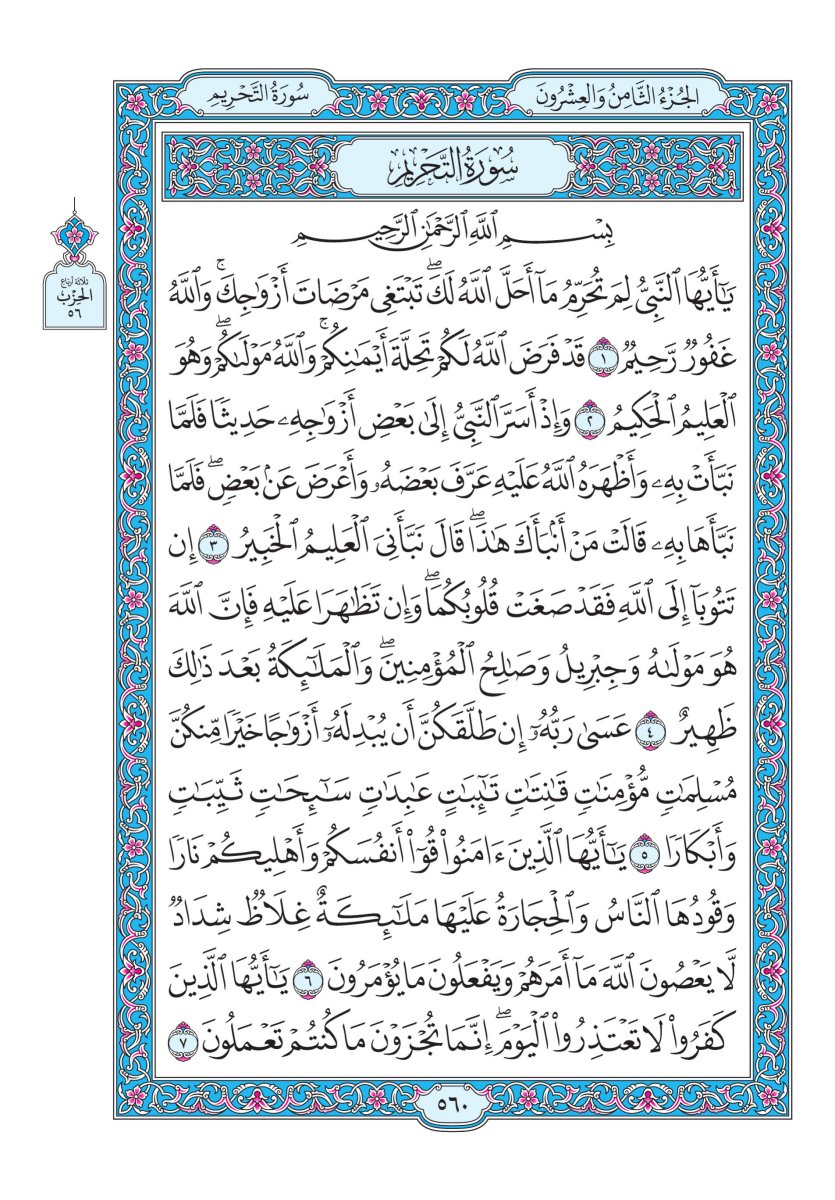 الجُزْءُ الثَّامِنُ وَالعِشْرُونَ
سُورَةُ التَّحْرِيمِ
سُورَةُ التَّحْرِيمِ
بِسْمِ ٱللَّهِ ٱلرَّحْمَٰنِ ٱلرَّحِيمِ
يَٰٓأَيُّهَا ٱلنَّبِيُّ لِمَ تُحَرِّمُ مَآ أَحَلَّ ٱللَّهُ لَكَۖ تَبْتَغِي مَرْضَاتَ أَزْوَٰجِكَۚ وَٱللَّهُ
غَفُورٌ رَّحِيمٌ ١ قَدْ فَرَضَ ٱللَّهُ لَكُمْ تَحِلَّةَ أَيْمَٰنِكُمْۚ وَٱللَّهُ مَوْلَىٰكُمْۖ وَهُوَ
ٱلْعَلِيمُ ٱلْحَكِيمُ ٢ وَإِذْ أَسَرَّ ٱلنَّبِيُّ إِلَىٰ بَعْضِ أَزْوَٰجِهِۦ حَدِيثًا فَلَمَّا
نَبَّأَتْ بِهِۦ وَأَظْهَرَهُ ٱللَّهُ عَلَيْهِ عَرَّفَ بَعْضَهُۥ وَأَعْرَضَ عَنۢ بَعْضٍۖ فَلَمَّا
نَبَّأَهَا بِهِۦ قَالَتْ مَنْ أَنۢبَأَكَ هَٰذَاۖ قَالَ نَبَّأَنِيَ ٱلْعَلِيمُ ٱلْخَبِيرُ ٣ إِن
تَتُوبَآ إِلَى ٱللَّهِ فَقَدْ صَغَتْ قُلُوبُكُمَاۖ وَإِن تَظَٰهَرَا عَلَيْهِ فَإِنَّ ٱللَّهَ
هُوَ مَوْلَىٰهُ وَجِبْرِيلُ وَصَٰلِحُ ٱلْمُؤْمِنِينَۖ وَٱلْمَلَٰٓئِكَةُ بَعْدَ ذَٰلِكَ
ظَهِيرٌ ٤ عَسَىٰ رَبُّهُۥٓ إِن طَلَّقَكُنَّ أَن يُبْدِلَهُۥٓ أَزْوَٰجًا خَيْرًا مِّنكُنَّ
مُسْلِمَٰتٍ مُّؤْمِنَٰتٍ قَٰنِتَٰتٍ تَٰٓئِبَٰتٍ عَٰبِدَٰتٍ سَٰٓئِحَٰتٍ ثَيِّبَٰتٍ
وَأَبْكَارًا ٥ يَٰٓأَيُّهَا ٱلَّذِينَ ءَامَنُوا۟ قُوٓا۟ أَنفُسَكُمْ وَأَهْلِيكُمْ نَارًا
وَقُودُهَا ٱلنَّاسُ وَٱلْحِجَارَةُ عَلَيْهَا مَلَٰٓئِكَةٌ غِلَاظٌ شِدَادٌ
لَّا يَعْصُونَ ٱللَّهَ مَآ أَمَرَهُمْ وَيَفْعَلُونَ مَا يُؤْمَرُونَ ٦ يَٰٓأَيُّهَا ٱلَّذِينَ
كَفَرُوا۟ لَا تَعْتَذِرُوا۟ ٱلْيَوْمَۖ إِنَّمَا تُجْزَوْنَ مَا كُنتُمْ تَعْمَلُونَ ٧
ثلاثة أرباع
الحِزْب
٥٦
٥٦٠